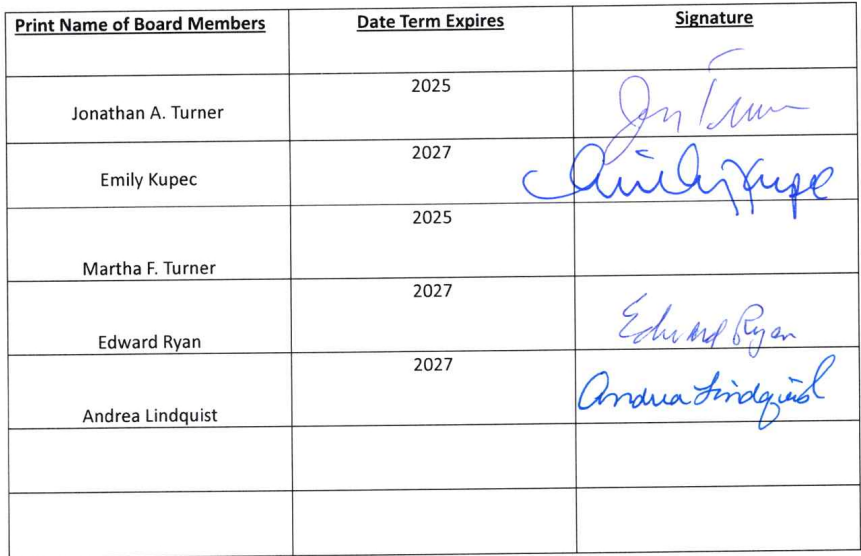 Print Name of Board Members Date Term Expires Signature
2025
Jonathan A. Turner Jon Turner
2027
Emily Kupec Emily Kupec
2025
Martha F. Turner
2027
Edward Ryan Edward Ryan
2027
Andrea Lindquist Andrea Lindquist